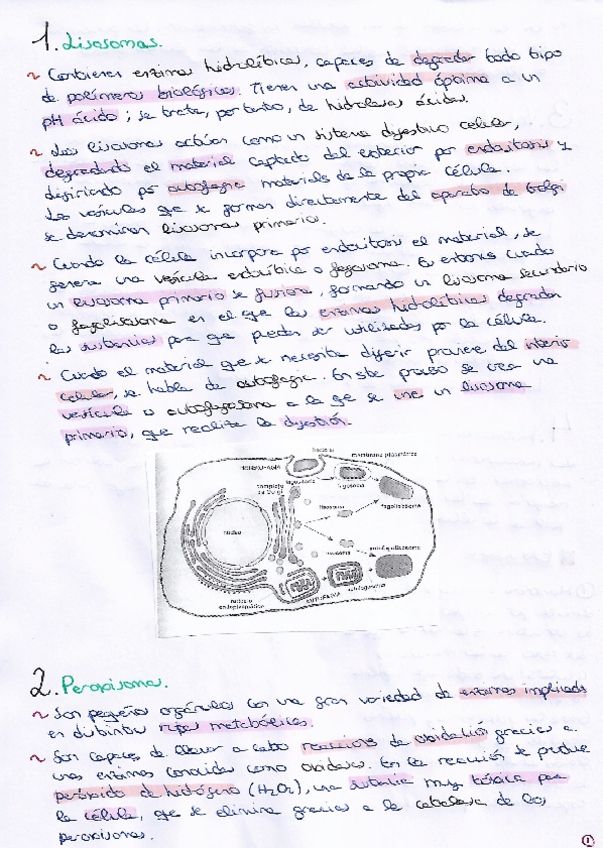 1. Lisosomas.
~ Contienen enzimas hidrolíticas, capaces de degradar todo tipo
de polímeros biológicos. Tienen una actividad óptima a un
pH ácido; se trata, por tanto, de hidrolasas ácidas.
~ Los lisosomas actúan como un sistema digestivo celular,
degradando el material captado del exterior por endocitosis y
digiriendo por autofagia materiales de la propia célula.
Las vesículas que se forman directamente del aparato de Golgi
se denominan lisosomas primarios.
~ Cuando la célula incorpora por endocitosis el material, se
genera una vesícula endocítica o fagosoma. Es entonces cuando
un lisosoma primario se fusiona, formando un lisosoma secundario
o fagolisosoma en el que las enzimas hidrolíticas degradan
las sustancias para que puedan ser utilizadas por la célula.
~ Cuando el material que se necesita digerir proviene del interior
celular, se habla de autofagia. En este proceso se crea una
vesícula o autofagosoma a la que se une un lisosoma
primario, que realiza la digestión.
bacteria
membrana plasmática
HETEROFAGIA
fagosoma
complejo
de Golgi
lisosoma
fagolisosoma
núcleo
lisosoma
autofagolisosoma
retículo
endoplasmático
AUTOFAGIA
autofagosoma
2. Peroxisomas.
~ Son pequeños orgánulos con una gran variedad de enzimas implicadas
en distintas rutas metabólicas.
~ Son capaces de llevar a cabo reacciones de oxidación gracias a
unas enzimas conocidas como oxidasas. En la reacción se produce
peróxido de hidrógeno (H2O2), una sustancia muy tóxica para
la célula, que se elimina gracias a la catalasa de los
peroxisomas.
1